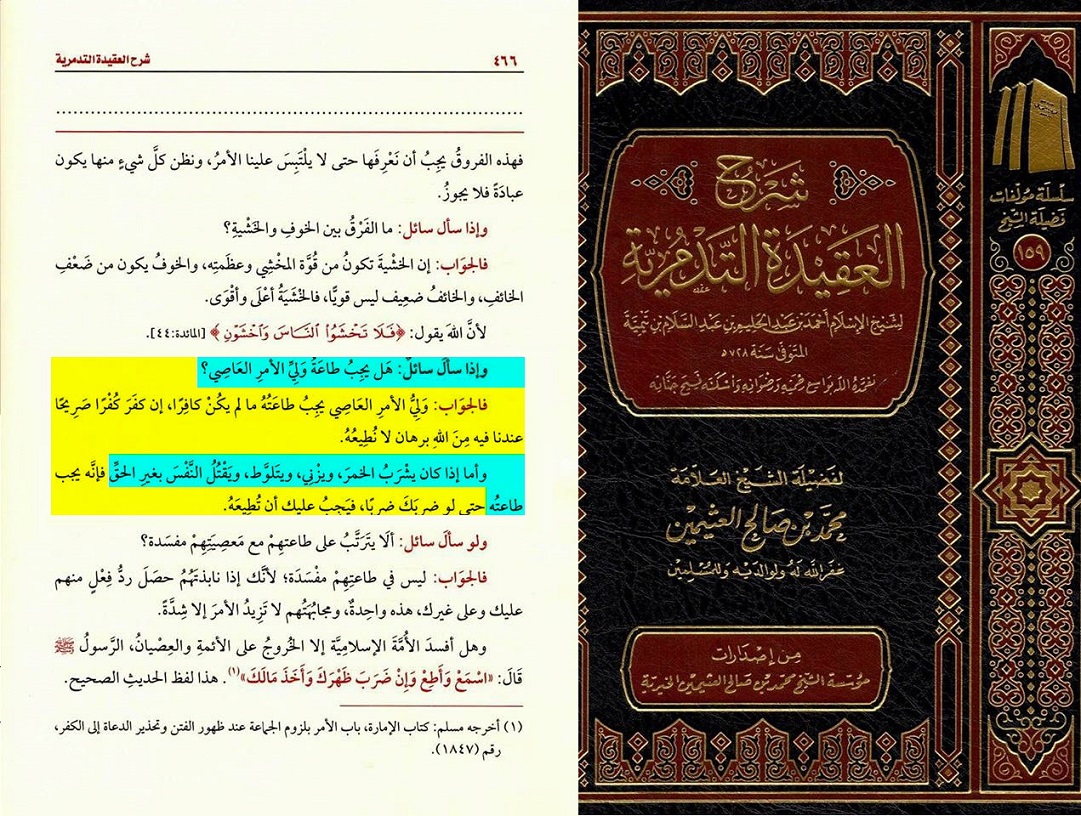 ٤٦٦
شرح العقيدة التدمرية
فهذه الفروقُ يجِبُ أن نَعْرِفَها حتى لا يلْتَبِسَ علينا الأمرُ، ونظن كلَّ شيءٍ منها يكون
عبادَةً فلا يجوزُ.
وإذا سأل سائل: ما الفَرْقُ بين الخوفِ والخَشْيةِ؟
فالجوَاب: إن الخشْيةَ تكونُ من قُوَّة المخْشِي وعظَمتِه، والخوفُ يكون من ضَعْفِ
الخائفِ، والخائفُ ضعِيف ليس قويًّا، فالخْشيَةُ أعْلَى وأقْوَى.
لأنَّ اللهَ يقول: ﴿فَلَا تَخْشَوُا۟ ٱلنَّاسَ وَٱخْشَوْنِ﴾ [المائدة:٤٤].
وإذا سألَ سائلٌ: هَل يجِبُ طاعَةُ وَلِيِّ الأمرِ العَاصِي؟
فالجوَاب: وَلِيُّ الأمرِ العَاصِي يجِبُ طاعَتُهُ ما لم يكُنْ كافِرًا، إن كفَرَ كُفْرًا صَرِيحًا
عندنا فيه مِنَ اللهِ برهان لا نُطِيعُهُ.
وأما إذا كان يشْرَبُ الخمرَ، ويزْنِي، ويتَلوَّط، ويَقْتُلُ النَّفْسَ بغيرِ الحقِّ فإنَّه يجب
طاعتُه حتى لو ضربَكَ ضربًا، فيَجِبُ عليك أن تُطِيعَهُ.
ولو سألَ سائل: ألَا يتَرَتَّبُ على طاعتهِمْ مع مَعصِيَتِهِمْ مفسَدة؟
فالجوَاب: ليس في طاعتِهِمْ مفْسَدَة؛ لأنَّكَ إذا نابذتَهُمْ حصَلَ ردُّ فِعْلٍ منهم
عليك وعلى غيرِك، هذه واحِدةٌ، ومجابهُتَهُم لا تَزِيدُ الأمرَ إلا شِدَّةً.
وهل أفسدَ الأُمَّةَ الإسلاميَّة إلا الخُروجُ على الأئمةِ والعِصْيانُ، الرَّسولُ ﷺ
قَالَ: «اسْمَعْ وَأَطِعْ وَإنْ ضَرَبَ ظَهْرَكَ وَأَخَذَ مَالَكَ»(١). هذا لفظ الحديثِ الصحيح.
(١) أخرجه مسلم: كتاب الإمارة، باب الأمر بلزوم الجماعة عند ظهور الفتن وتحذير الدعاة إلى الكفر،
رقم (١٨٤٧).
شرح
العقيدة التدمرية
لشيخ الإسلام أحمد بن عبد الحليم بن عبد السلام بن تيمية
المتوفى سنة ٧٢٨ ه
تغمده الله بواسع رحمته ورضوانه وأسكنه فسيح جناته
لفضيلة الشيخ العلامة
محمد بن صالح العثيمين
غفر الله له ولوالديه وللمسلمين
من إصدارات
مؤسسة الشيخ محمد بن صالح العثيمين الخيرية
سلسلة مؤلفات
فضيلة الشيخ
١٥٩